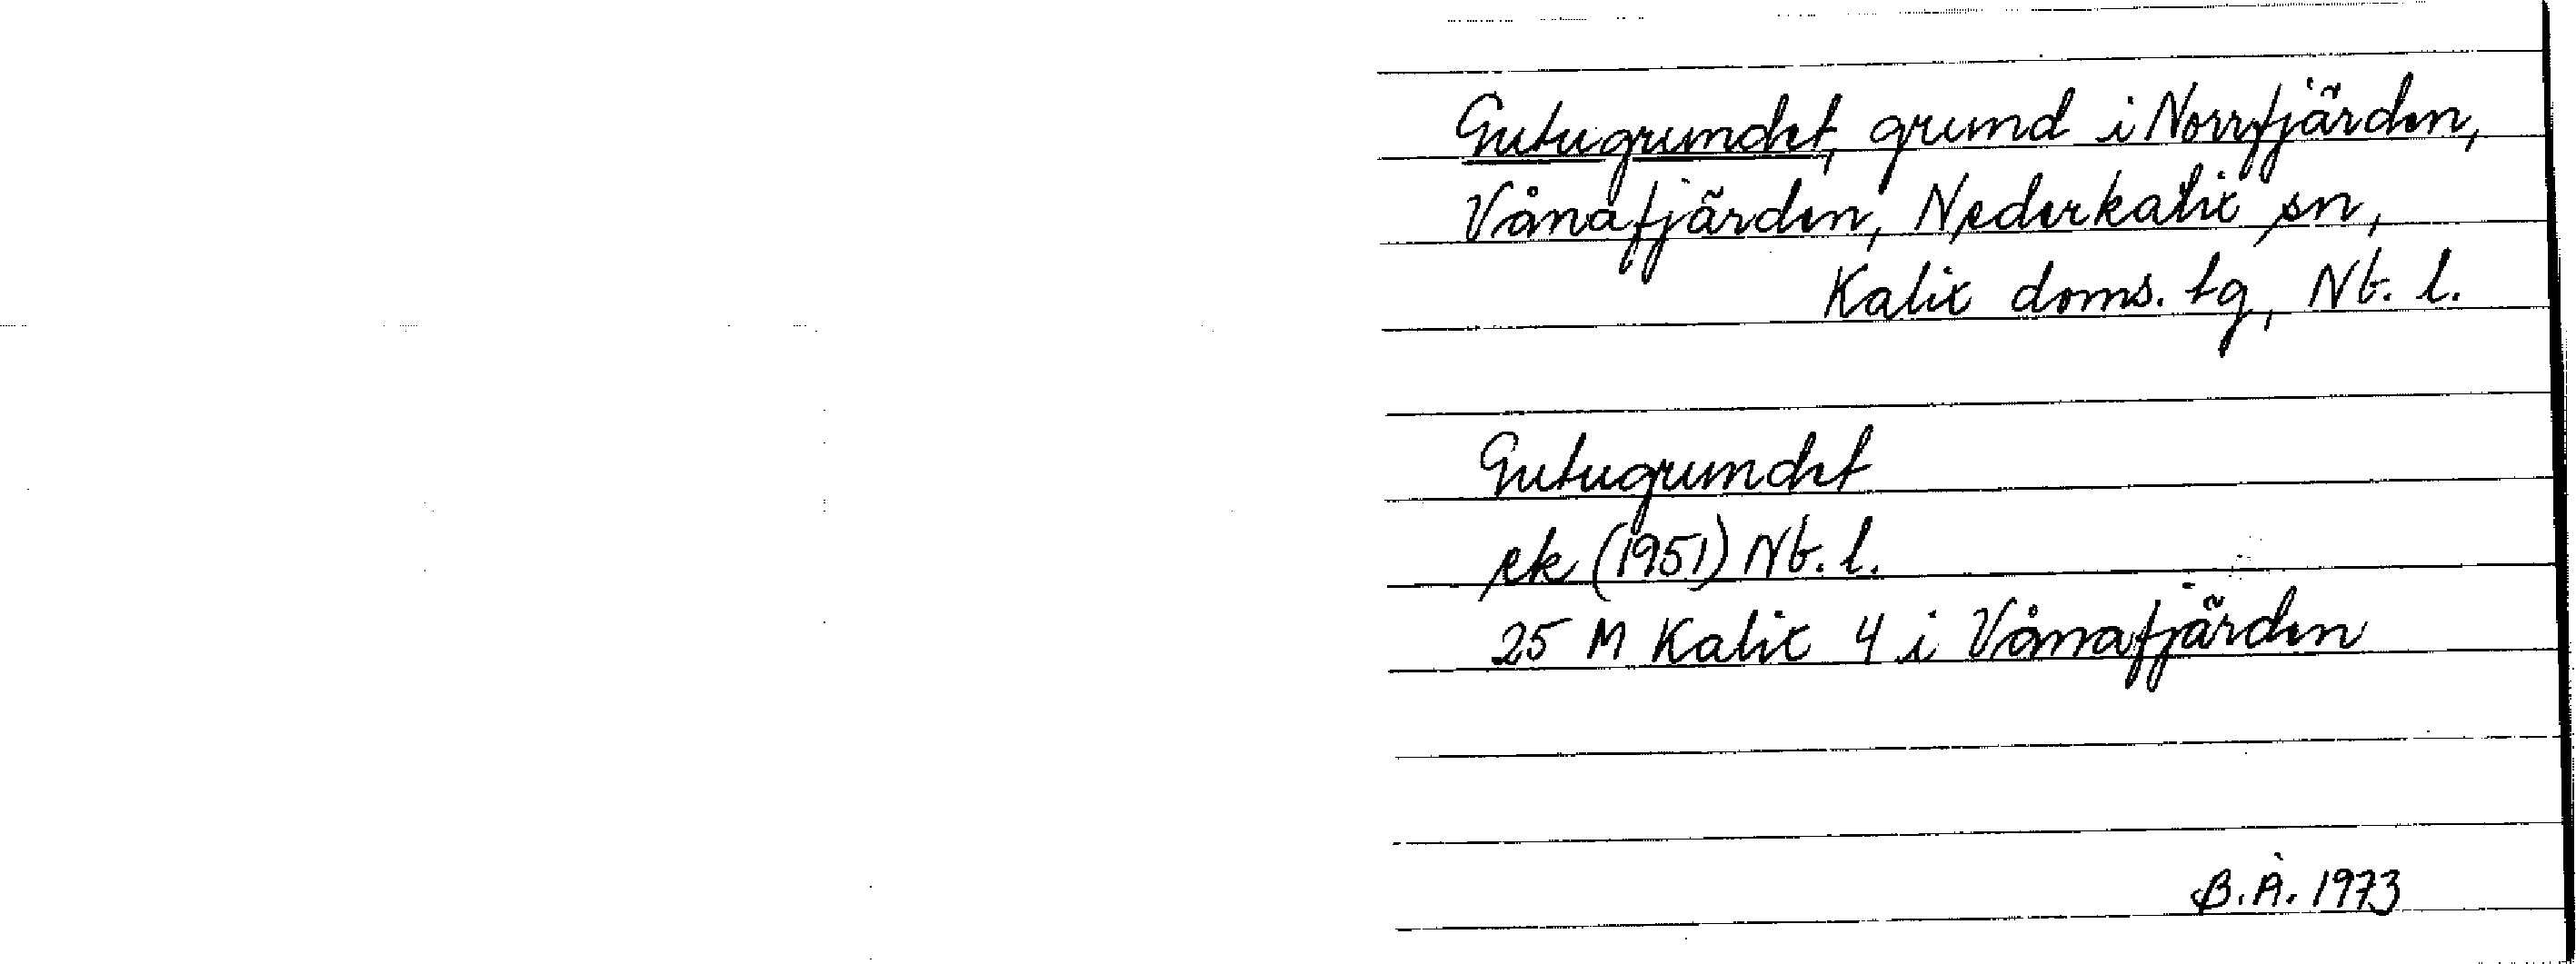 Gutugrundet, grund i Norrfjärden,
Vånafjärden, Nederkalix sn,
Kalix doms. tg, Nb. l.
Gutugrundet
ek (1951) Nb. l.
25 M Kalix 4 i Vånafjärden
B.Å. 1973